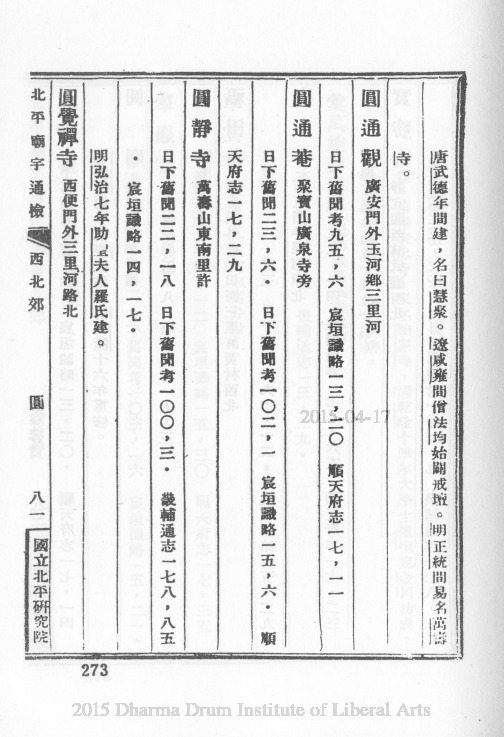 唐武德年間建，名曰慧聚。遼咸雍間僧法均始闢戒壇。明正統間易名萬壽
寺。
圓通觀　廣安門外玉河鄉三里河
日下舊聞考九五，六　宸垣識略一三，二〇　順天府志一七，一一
圓通菴　聚寶山廣泉寺旁
日下舊聞二三，六・　日下舊聞考一〇二，一・宸垣識略一五，六・　順
天府志一七，二九
圓靜寺　萬壽山東南里許
日下舊聞二二，一八　日下舊聞考一〇〇，三・　畿輔通志一七八，八五
・　宸垣識略一四，一七・
明弘治七年助夫人羅氏建。
圓覺禪寺　西便門外三里河路北
北平廟宇通檢　西北郊　圓　八一　國立北平研究院
273
2015-04-17
2015 Dharma Drum Institute of Liberal Arts